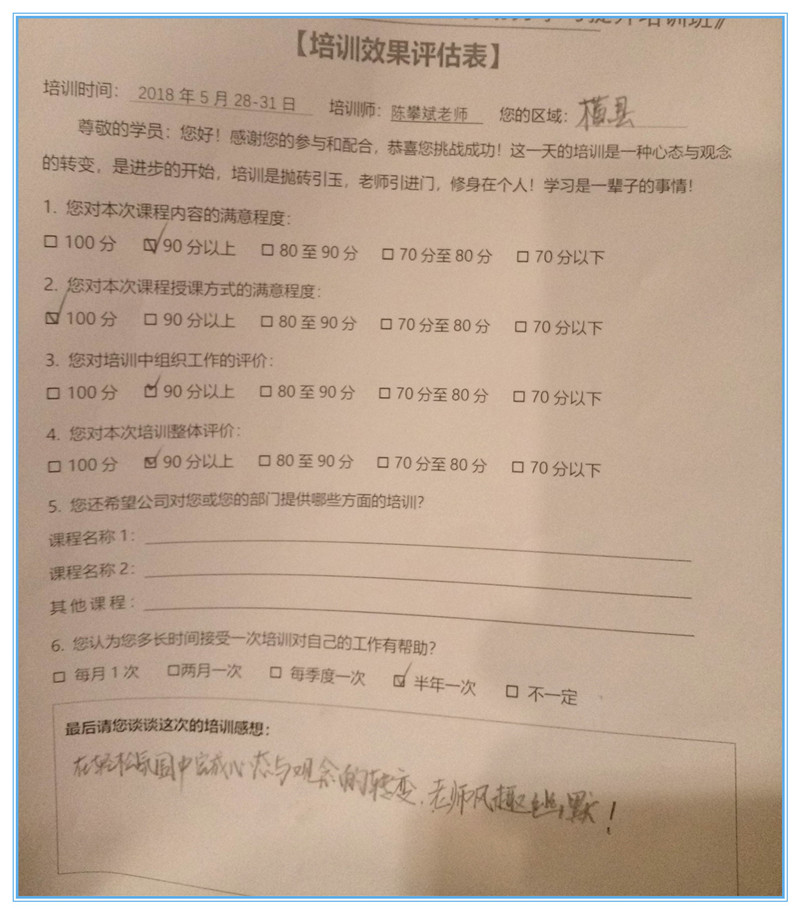 提升培训班》
【培训效果评估表】
培训时间： 2018 年 5 月 28-31 日 培训师：陈攀斌老师 您的区域：横县
尊敬的学员：您好！感谢您的参与和配合，恭喜您挑战成功！这一天的培训是一种心态与观念
的转变，是进步的开始，培训是抛砖引玉，老师引进门，修身在个人！学习是一辈子的事情！
1. 您对本次课程内容的满意程度：
□ 100 分 ☑ 90 分以上 □ 80 至 90 分 □ 70 分至 80 分 □ 70 分以下
2. 您对本次课程授课方式的满意程度：
☑ 100 分 □ 90 分以上 □ 80 至 90 分 □ 70 分至 80 分 □ 70 分以下
3. 您对培训中组织工作的评价：
□ 100 分 ☑ 90 分以上 □ 80 至 90 分 □ 70 分至 80 分 □ 70 分以下
4. 您对本次培训整体评价：
□ 100 分 ☑ 90 分以上 □ 80 至 90 分 □ 70 分至 80 分 □ 70 分以下
5. 您还希望公司对您或您的部门提供哪些方面的培训？
课程名称 1：
课程名称 2：
其他课程：
6. 您认为您多长时间接受一次培训对自己的工作有帮助？
□ 每月 1 次 □两月一次 □ 每季度一次 ☑ 半年一次 □ 不一定
最后请您谈谈这次的培训感想：
在轻松氛围中完成心态与观念的转变，老师风趣幽默！